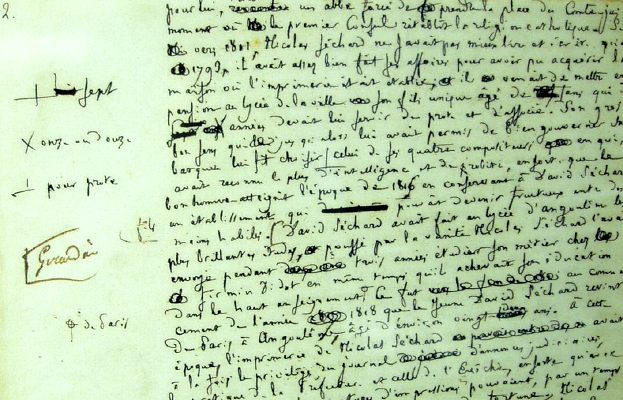 2.
pour lui, un abbé forcé de prendre la place du Contenu
moment où le premier Consul rétablit la religion catholique.
vers 1801 Nicolas Séchard ne savait pas mieux lire et écrire, qu'en
1793, il avait assez bien fait ses affaires pour avoir pu acquérir la
maison où l'imprimerie était établie, et il venait de mettre en
pension au lycée de la ville son fils unique âgé de ans, qui
sept
années devait lui servir de prote et d'associé. Son gros
X onze ou douze
bon sens qui alors lui avait permis de bien gouverner sa
barque lui fit choisir celui de ses quatre compositeurs en qui,
⊥ pour prote
avait reconnu le plus d'intelligence et de probité, en sorte que le
bonhomme atteignit l'époque de 1816 en conservant à David Séchard
un établissement qui pouvait devenir fructueux entre des
mains habiles. David Séchard avait fait au lycée d'Angoulême les
plus brillantes études, et poussé par la Nicolas Séchard l'avait
envoyé pendant trois années étudier son métier chez les
Girardin
Firmin Didot en même temps qu'il achevait son éducation
dans le haut enseignement. Ce fut au commen
cement de l'année 1818 que le jeune David Séchard revint
de Paris
De Paris à Angoulême, âgé d'environ vingt ans. à cette
époque, l'imprimerie de Nicolas Séchard avait
à la fois le privilège du journal d'annonces judiciaires,
de la Préfecture et celle de l'Evêché, en sorte qu'avec
d'impressions pouvaient, par un temps
fortune, Nicolas